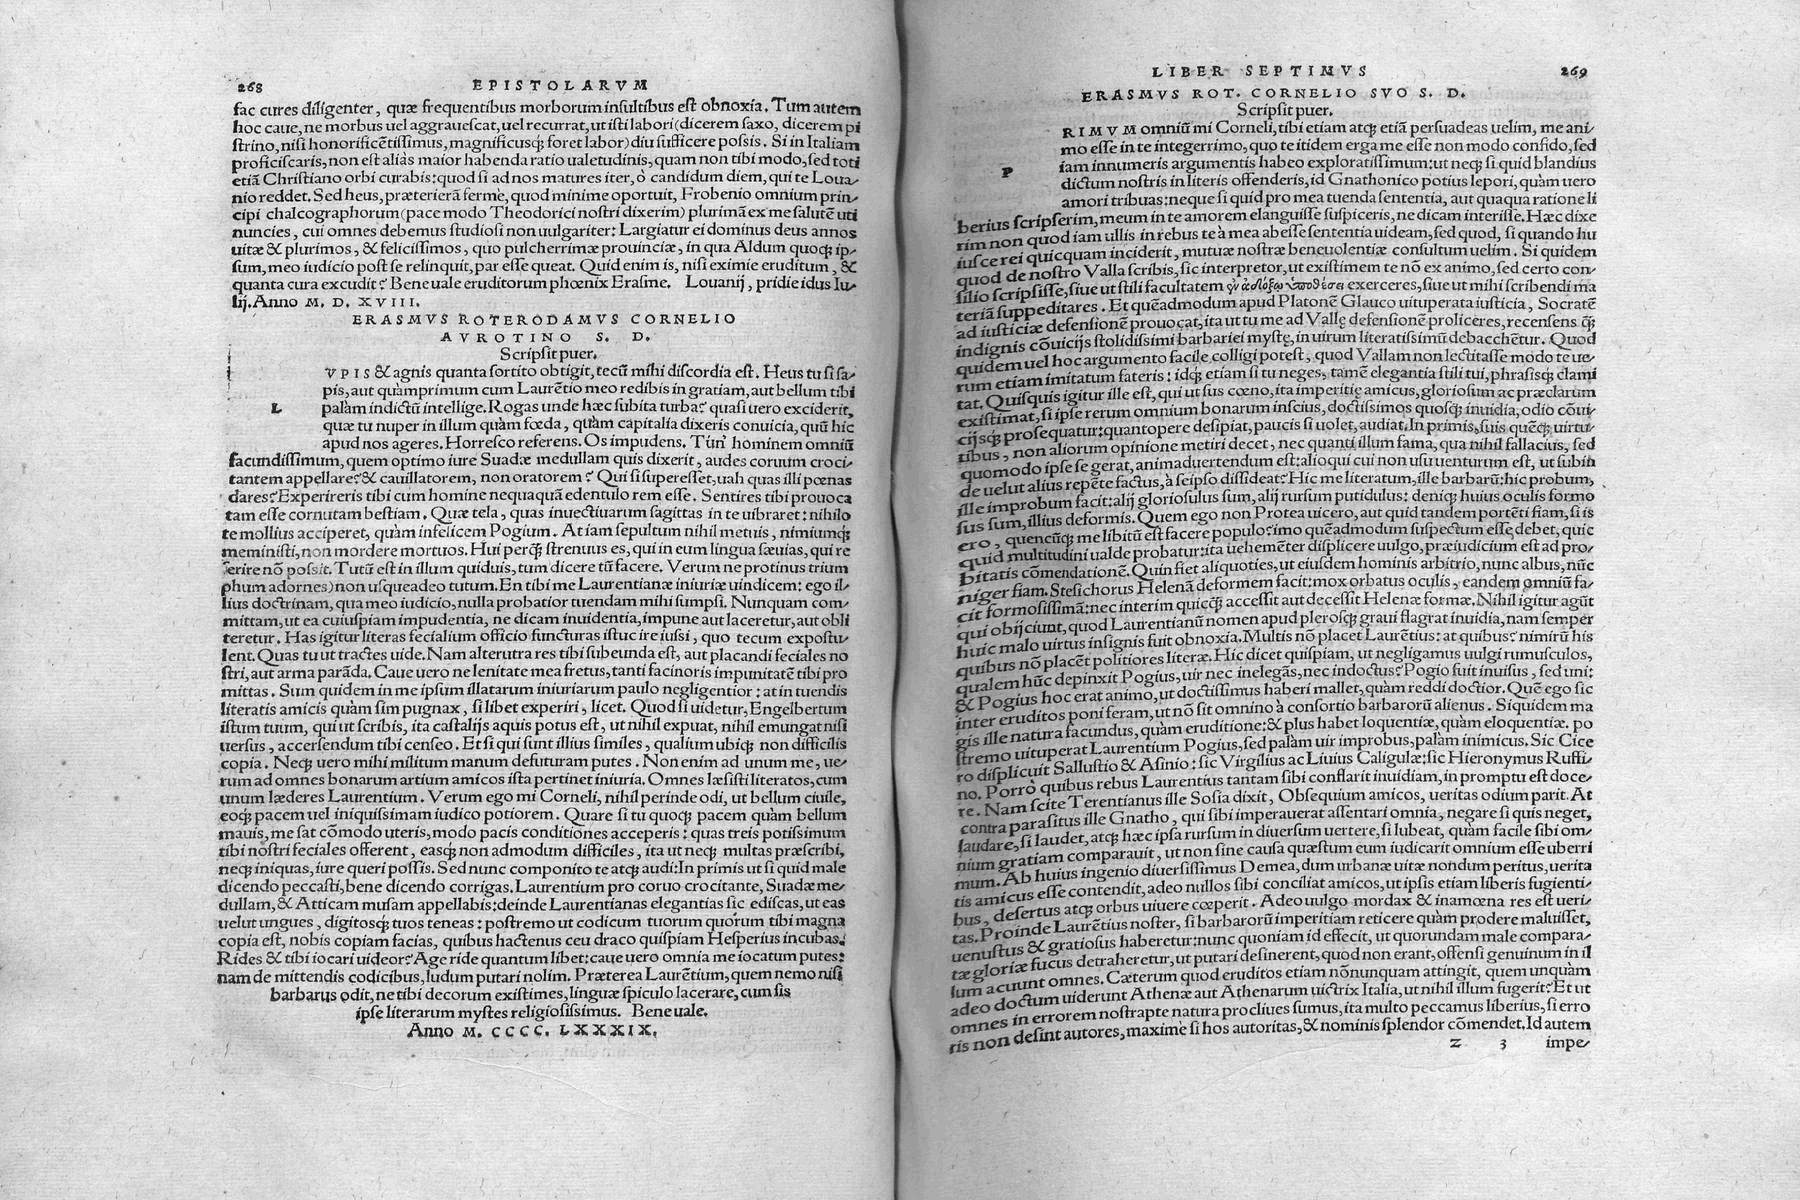 268 EPISTOLARVM
fac cures diligenter, quæ frequentibus morborum insultibus est obnoxia. Tum autem
hoc caue, ne morbus uel aggrauescat, uel recurrat, ut isti labori (dicerem saxo, dicerem pi
strino, nisi honorificẽtissimus, magnificusq́; foret labor) diu sufficere possis. Si in Italiam
proficiscaris, non est aliàs maior habenda ratio ualetudinis, quam non tibi modo, sed toti
etiã Christiano orbi curabis: quod si ad nos matures iter, ò candidum diem, qui te Loua⸗
nio reddet. Sed heus, præterierã fermè, quod minime oportuit, Frobenio omnium prin⸗
cipi chalcographorum (pace modo Theodorici nostri dixerim) plurimã ex me salutẽ uti
nuncies, cui omnes debemus studiosi non uulgariter: Largiatur ei dominus deus annos
uitæ & plurimos, & felicissimos, quo pulcherrimæ prouinciæ, in qua Aldum quoq; ip⸗
sum, meo iudicio post se relinquit, par esse queat. Quid enim is, nisi eximie eruditum, &
quanta cura excudit? Bene uale eruditorum phœnix Erasme. Louanij, pridie idus Iu⸗
lij. Anno M. D. XVIII.
ERASMVS ROTERODAMVS CORNELIO
AVROTINO S. D.
Scripsit puer.
LVPIS & agnis quanta sortito obtigit, tecũ mihi discordia est. Heus tu si sa⸗
pis, aut quàmprimum cum Laurẽtio meo redibis in gratiam, aut bellum tibi
palàm indictũ intellige. Rogas unde hæc subita turba? quasi uero exciderit,
quæ tu nuper in illum quàm fœda, quàm capitalia dixeris conuicia, quũ hic
apud nos ageres. Horresco referens. Os impudens. Tũn' hominem omniũ
facundissimum, quem optimo iure Suadæ medullam quis dixerit, audes coruum croci⸗
tantem appellare? & cauillatorem, non oratorem? Qui si superesset, uah quas illi pœnas
dares? Experireris tibi cum homine nequaquã edentulo rem esse. Sentires tibi prouoca
tam esse cornutam bestiam. Quæ tela, quas inuectiuarum sagittas in te uibraret: nihilo
te mollius acciperet, quàm infelicem Pogium. At iam sepultum nihil metuis, nimiumq́;
meministi, non mordere mortuos. Hui perq̃; strenuus es, qui in eum lingua sæuias, qui re
ferire nõ possit. Tutũ est in illum quiduis, tum dicere tũ facere. Verum ne protinus trium
phum adornes) non usqueadeo tutum. En tibi me Laurentianæ iniuriæ uindicem: ego il⸗
lius doctrinam, qua meo iudicio, nulla probatior tuendam mihi sumpsi. Nunquam com⸗
mittam, ut ea cuiuspiam impudentia, ne dicam inuidentia, impune aut laceretur, aut obli
teretur. Has igitur literas fecialium officio functuras istuc ire iussi, quo tecum expostu⸗
lent. Quas tu ut tractes uide. Nam alterutra res tibi subeunda est, aut placandi feciales no
stri, aut arma parãda. Caue uero ne lenitate mea fretus, tanti facinoris impunitatẽ tibi pro
mittas. Sum quidem in me ipsum illatarum iniuriarum paulo negligentior: at in tuendis
literatis amicis quàm sim pugnax, si libet experiri, licet. Quod si uidetur, Engelbertum
istum tuum, qui ut scribis, ita castalijs aquis potus est, ut nihil expuat, nihil emungat nisi
uersus, accersendum tibi censeo. Et si qui sunt illius similes, qualium ubiq; non difficilis
copia. Neq; uero mihi militum manum defuturam putes. Non enim ad unum me, ue⸗
rum ad omnes bonarum artium amicos ista pertinet iniuria. Omnes læsisti literatos, cum
unum læderes Laurentium. Verum ego mi Corneli, nihil perinde odi, ut bellum ciuile,
eoq; pacem uel iniquissimam iudico potiorem. Quare si tu quoq; pacem quàm bellum
mauis, me sat cõmodo uteris, modo pacis conditiones acceperis: quas treis potissimum
tibi nostri feciales offerent, easq; non admodum difficiles, ita ut neq; multas præscribi,
neq; iniquas, iure queri possis. Sed nunc componito te atq; audi: In primis ut si quid male
dicendo peccasti, bene dicendo corrigas. Laurentium pro coruo crocitante, Suadæ me⸗
dullam, & Atticam musam appellabis: deinde Laurentianas elegantias sic ediscas, ut eas
uelut ungues, digitosq; tuos teneas: postremo ut codicum tuorum quorum tibi magna
copia est, nobis copiam facias, quibus hactenus ceu draco quispiam Hesperius incubas.
Rides & tibi iocari uideor? Age ride quantum libet: caue uero omnia me iocatum putes:
nam de mittendis codicibus, ludum putari nolim. Præterea Laurẽtium, quem nemo nisi
barbarus odit, ne tibi decorum existimes, linguæ spiculo lacerare, cum sis
ipse literarum mystes religiosissimus. Bene uale.
Anno M. CCCC. LXXXIX.
LIBER SEPTIMVS 269
ERASMVS ROT. CORNELIO SVO S. D.
Scripsit puer.
PRIMVM omniũ mi Corneli, tibi etiam atq; etiã persuadeas uelim, me ani⸗
mo esse in te integerrimo, quo te itidem erga me esse non modo confido, sed
iam innumeris argumentis habeo exploratissimum: ut neq; si quid blandius
dictum nostris in literis offenderis, id Gnathonico potius lepori, quàm uero
amori tribuas: neque si quid pro mea tuenda sententia, aut quaqua ratione li
berius scripserim, meum in te amorem elanguisse suspiceris, ne dicam interisse. Hæc dixe
rim non quod iam ullis in rebus te à mea abesse sententia uideam, sed quod, si quando hu
iusce rei quicquam inciderit, mutuæ nostræ beneuolentiæ consultum uelim. Si quidem
quod de nostro Valla scribis, sic interpretor, ut existimem te nõ ex animo, sed certo con⸗
silio scripsisse, siue ut stili facultatem exerceres, siue ut mihi scribendi ma
teriã suppeditares. Et quẽadmodum apud Platonẽ Glauco uituperata iusticia, Socratẽ
ad iusticiæ defensionẽ prouocat, ita ut tu me ad Vallę defensionẽ proliceres, recensens q̃;
indignis cõuicijs stolidissimi barbariei mystę, in uirum literatissimũ debacchẽtur. Quod
quidem uel hoc argumento facile colligi potest, quod Vallam non lectitasse modo te ue⸗
rum etiam imitatum fateris: idq; etiam si tu neges, tamẽ elegantia stili tui, phrasisq; clami
tat. Quisquis igitur ille est, qui ut sus cœno, ita imperitię amicus, gloriosum ac præclarum
existimat, si ipse rerum omnium bonarum inscius, doctissimos quosq; inuidia, odio cõui⸗
cijsq; prosequatur: quantopere desipiat, paucis si uolet, audiat. In primis, suis quẽq; uirtu⸗
tibus, non aliorum opinione metiri decet, nec quanti illum fama, qua nihil fallacius, sed
quomodo ipse se gerat, animaduertendum est: alioqui cui non usu uenturum est, ut subin
de uelut alius repẽte factus, à seipso dissideat? Hic me literatum, ille barbarũ: hic probum,
ille improbum facit: alij gloriosulus sum, alij rursum putidulus: deniq; huius oculis formo
sus sum, illius deformis. Quem ego non Protea uicero, aut quid tandem portẽti fiam, si is
ero, quencũq; me libitũ est facere populo? imo quẽadmodum suspectum esse debet, quic
quid multitudini ualde probatur: ita uehemẽter displicere uulgo, præiudicium est ad pro⸗
bitatis cõmendationẽ. Quin fiet aliquoties, ut eiusdem hominis arbitrio, nunc albus, nũc
niger fiam. Stesichorus Helenã deformem facit: mox orbatus oculis, eandem omniũ fa⸗
cit formosissimã: nec interim quicq̃; accessit aut decessit Helenæ formæ. Nihil igitur agũt
qui obijciunt, quod Laurentianũ nomen apud plerosq; graui flagrat inuidia, nam semper
huic malo uirtus insignis fuit obnoxia. Multis nõ placet Laurẽtius: at quibus? nimirũ his
quibus nõ placẽt politiores literæ. Hic dicet quispiam, ut negligamus uulgi rumusculos,
qualem hũc depinxit Pogius, uir nec inelegãs, nec indoctus? Pogio fuit inuisus, sed uni:
& Pogius hoc erat animo, ut doctissimus haberi mallet, quàm reddi doctior. Quẽ ego sic
inter eruditos poni feram, ut nõ sit omnino à consortio barbarorũ alienus. Siquidem ma
gis ille natura facundus, quàm eruditione: & plus habet loquentiæ, quàm eloquentiæ. po
stremo uituperat Laurentium Pogius, sed palàm uir improbus, palàm inimicus. Sic Cice
ro displicuit Sallustio & Asinio: sic Virgilius ac Liuius Caligulæ: sic Hieronymus Ruffi⸗
no. Porrò quibus rebus Laurentius tantam sibi conflarit inuidiam, in promptu est doce⸗
re. Nam scite Terentianus ille Sosia dixit, Obsequium amicos, ueritas odium parit. At
contra parasitus ille Gnatho, qui sibi imperauerat assentari omnia, negare si quis neget,
laudare, si laudet, atq; hæc ipsa rursum in diuersum uertere, si lubeat, quàm facile sibi om⸗
nium gratiam comparauit, ut non sine causa quæstum eum iudicarit omnium esse uberri
mum. Ab huius ingenio diuersissimus Demea, dum urbanæ uitæ nondum peritus, uerita
tis amicus esse contendit, adeo nullos sibi conciliat amicos, ut ipsis etiam liberis fugienti⸗
bus, desertus atq; orbus uiuere cœperit. Adeo uulgo mordax & inamœna res est ueri⸗
tas. Proinde Laurẽtius noster, si barbarorũ imperitiam reticere quàm prodere maluisset,
uenustus & gratiosus haberetur: nunc quoniam id effecit, ut quorundam male compara⸗
tæ gloriæ fucus detraheretur, ut putari desinerent, quod non erant, offensi genuinum in il
lum acuunt omnes. Cæterum quod eruditos etiam nõnunquam attingit, quem unquàm
adeo doctum uiderunt Athenæ aut Athenarum uictrix Italia, ut nihil illum fugerit? Et ut
omnes in errorem nostrapte natura procliues sumus, ita multo peccamus liberius, si erro
ris non desint autores, maximè si hos autoritas, & nominis splendor cõmendet. Id autem
Z 3 impe⸗